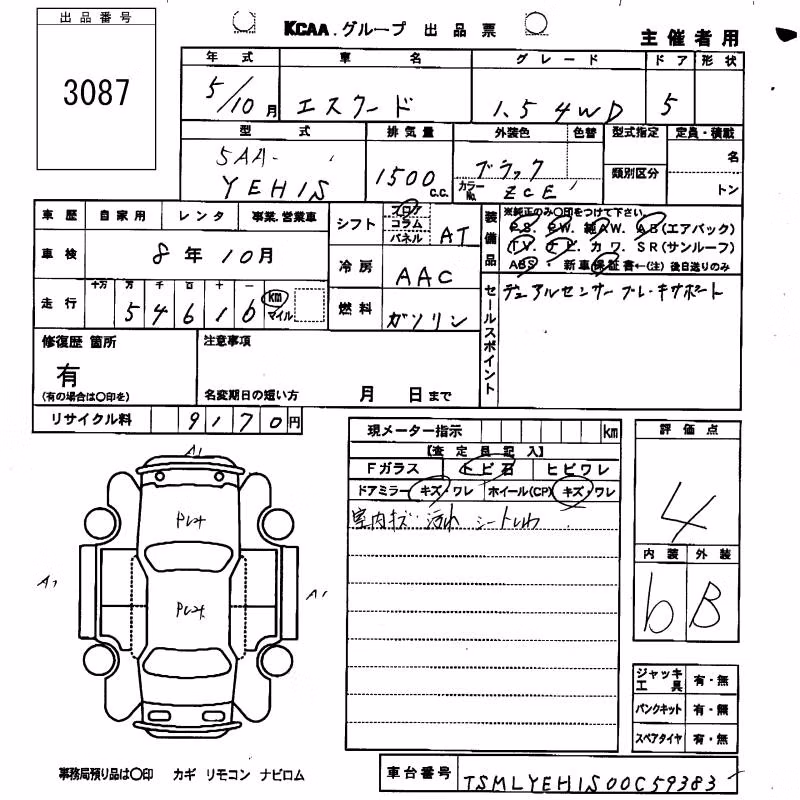 出品番号
3087
KCAA.グループ 出品票
主催者用
年式 車名 グレード ドア 形状
5/10月 エスクード 1.5 4WD 5
型式 排気量 外装色 色替 型式指定 定員・積載
5AA-
YEH1S 1500 c.c. ブラック
カラーNo. ZCE
類別区分 名
トン
車歴 自家用 レンタ 事業.営業車
車検 8年10月
走行 十万 万 千 百 十 一
5 4 6 1 6 km マイル
シフト フロア コラム パネル AT
冷房 AAC
燃料 ガソリン
装備品
※純正のみ〇印をつけて下さい。
P.S. P.W. 純AW. AB(エアバック)
TV. ナビ. カワ. SR(サンルーフ)
ABS・新車保証書←(注)後日送りのみ
セールスポイント
デュアルセンサーブレーキサポート
修復歴 箇所
有
(有の場合は〇印を)
注意事項
名変期日の短い方 月 日まで
リサイクル料 9170円
現メーター指示 km
【査定員記入】
Fガラス トビ石 ヒビワレ
ドアミラー キズ・ワレ ホイール(CP) キズ・ワレ
室内キズ・汚れ シートしわ
評価点
4
内装 外装
b B
A1
Pレス
Pレス
A1
A1
ジャッキ工具 有・無
パンクキット 有・無
スペアタイヤ 有・無
事務局預り品は〇印 カギ リモコン ナビロム
車台番号 TSMLYEH1S00C59383